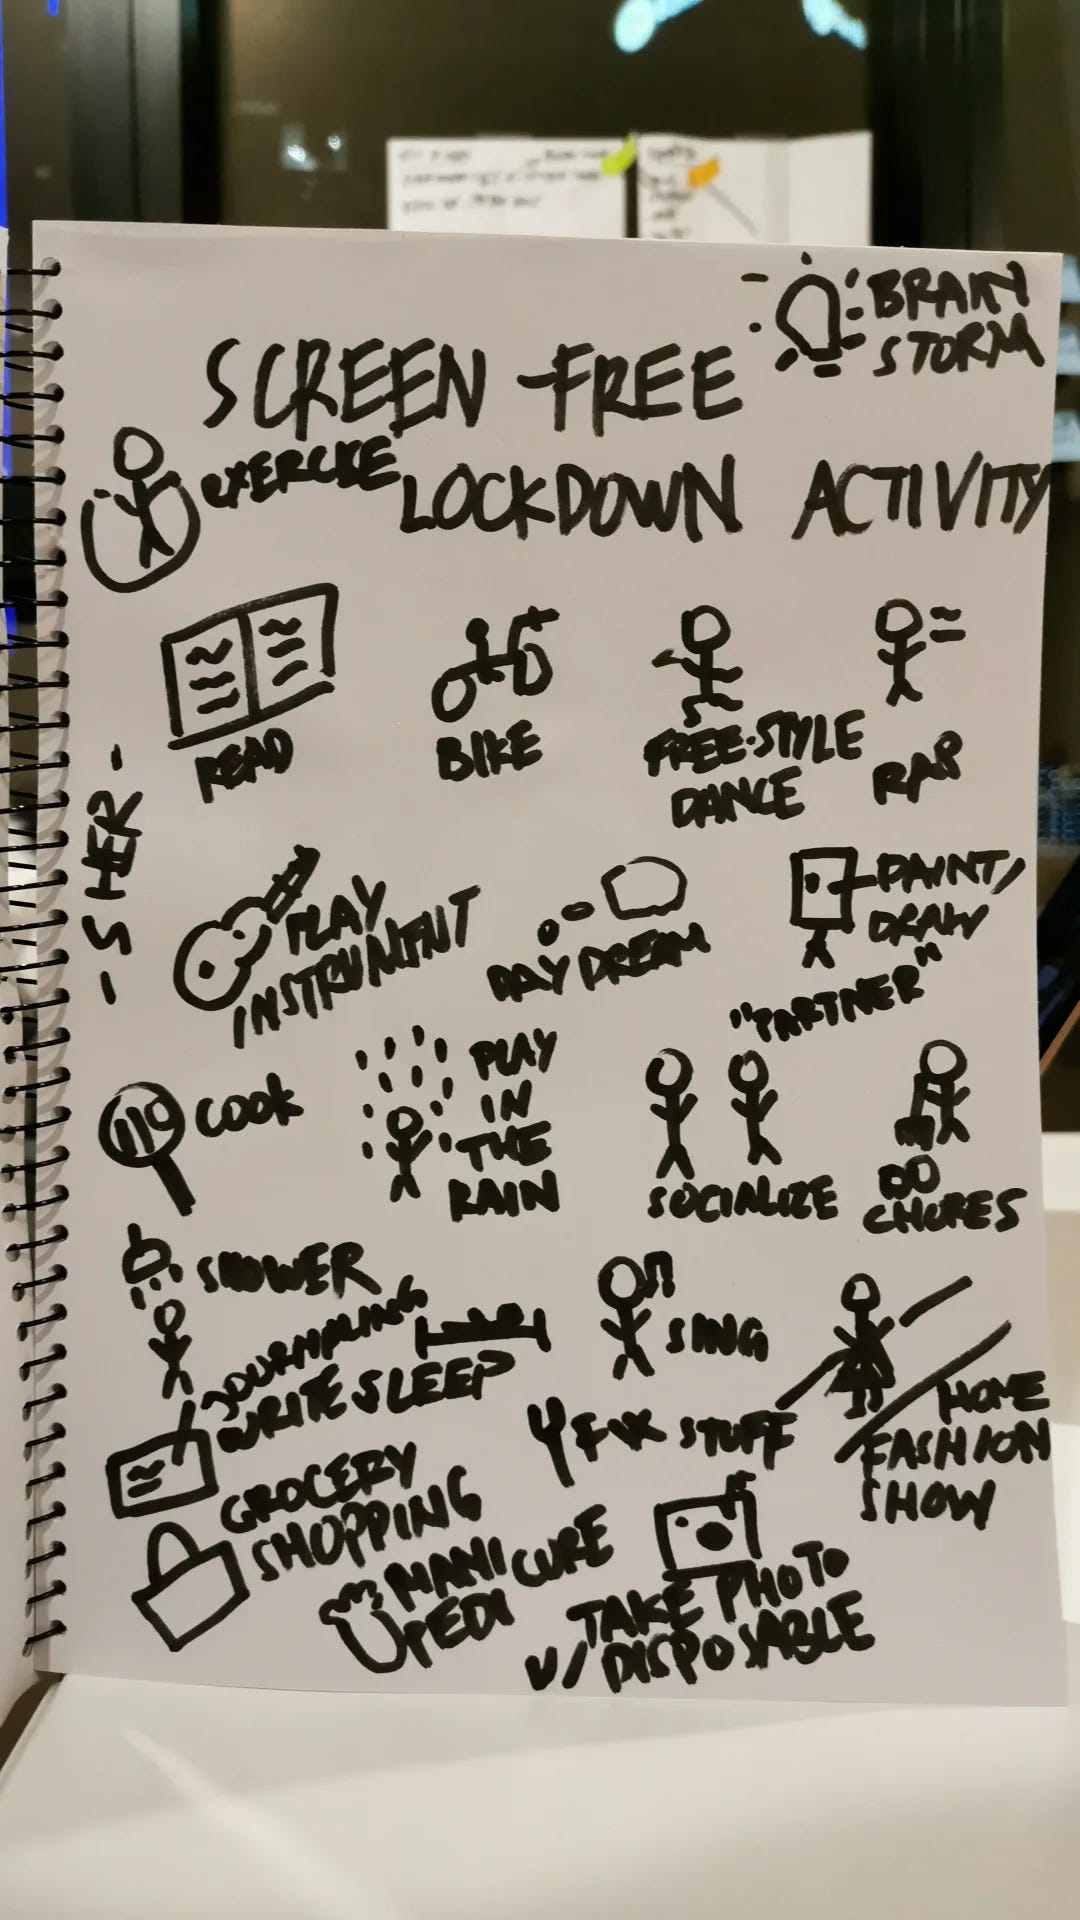 BRAIN
STORM
SCREEN-FREE
EXERCISE
LOCKDOWN ACTIVITY
READ
BIKE
FREE-STYLE
DANCE
RAP
- SHER -
PLAY
INSTRUMENT
DAY DREAM
PAINT/
DRAW
"PARTNER"
COOK
PLAY
IN
THE
RAIN
SOCIALIZE
DO
CHORES
SHOWER
JOURNALING
WRITE
SLEEP
SING
HOME
FASHION
SHOW
FIX STUFF
GROCERY
SHOPPING
MANI CURE
PEDI
TAKE PHOTO
W/ DISPOSABLE